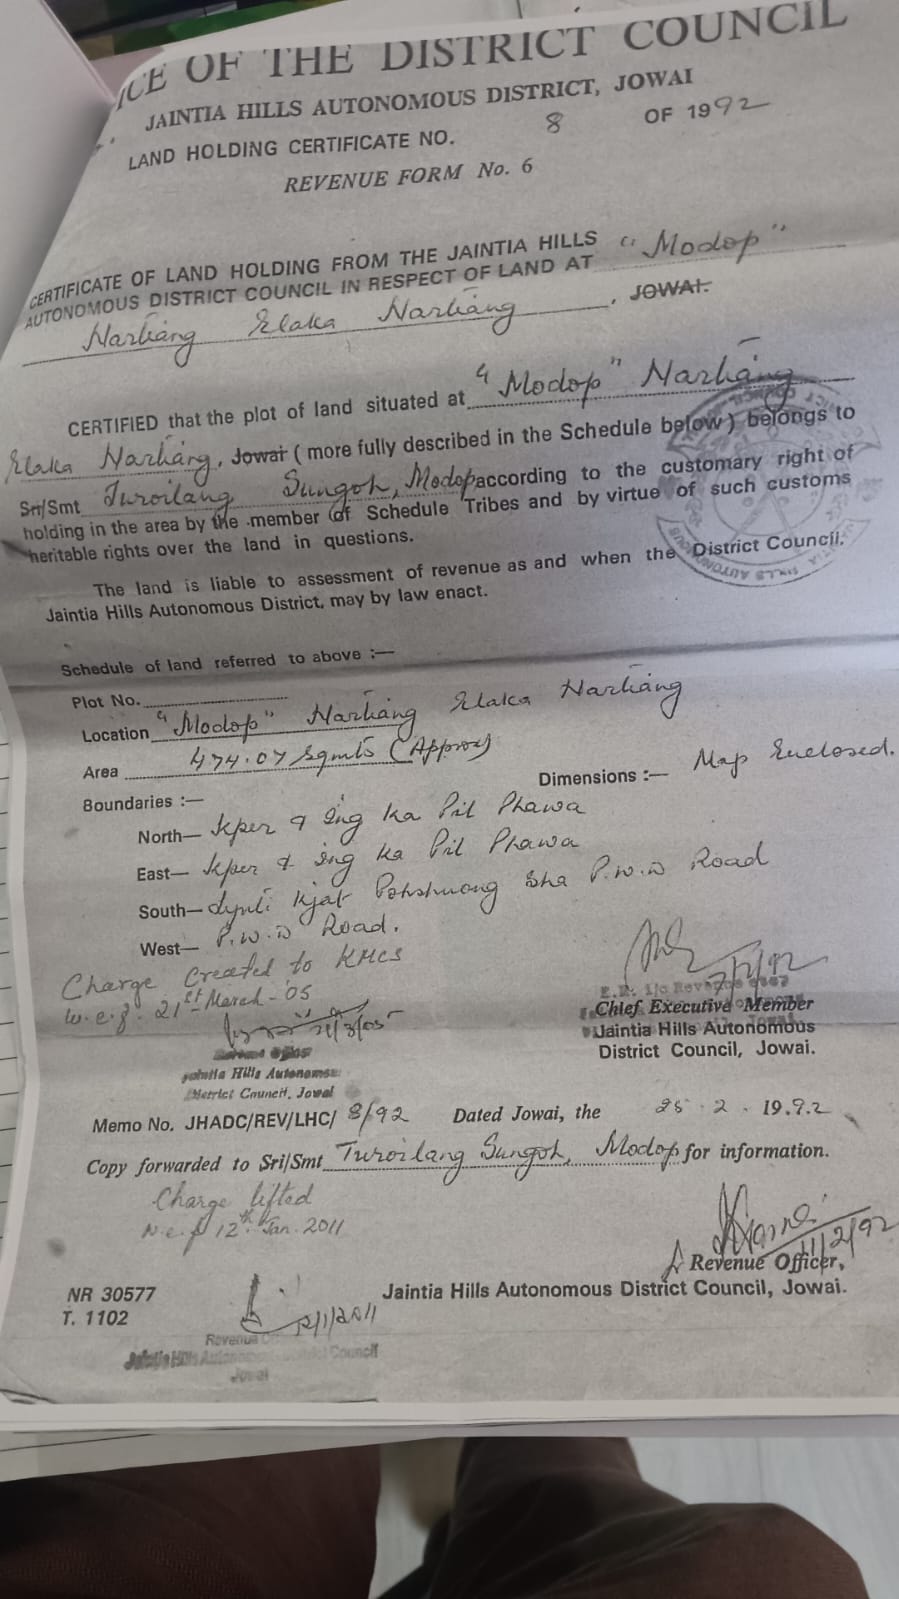 ICE OF THE DISTRICT COUNCIL
JAINTIA HILLS AUTONOMOUS DISTRICT, JOWAI
LAND HOLDING CERTIFICATE NO. 8 OF 1992
REVENUE FORM No. 6
CERTIFICATE OF LAND HOLDING FROM THE JAINTIA HILLS
AUTONOMOUS DISTRICT COUNCIL IN RESPECT OF LAND AT "Modop"
Nartiang Elaka Nartiang, JOWAI.
CERTIFIED that the plot of land situated at "Modop" Nartiang
Elaka Nartiang, Jowai (more fully described in the Schedule below) belongs to
Sri/Smt Turoilang Sungoh, Modop according to the customary right of
holding in the area by the member of Schedule Tribes and by virtue of such customs
heritable rights over the land in questions.
The land is liable to assessment of revenue as and when the District Council.
Jaintia Hills Autonomous District, may by law enact.
Schedule of land referred to above :—
Plot No.
Location "Modop" Nartiang Elaka Nartiang
Area 474.07 Sqmts (Approx)
Dimensions :— Map Enclosed.
Boundaries :—
North— Kper & Ing Ka Pil Phawa
East— Kper & Ing Ka Pil Phawa
South— Lynti Kjat Pohshnong Sha P.W.D Road
West— P.W.D Road.
Charge Created to KMCS
w.e.f. 21st March-'05
21/3/05
Jaintia Hills Autonomous
District Council, Jowai
Chief Executive Member
Jaintia Hills Autonomous
District Council, Jowai.
Memo No. JHADC/REV/LHC/ 8/92 Dated Jowai, the 25.2.1992
Copy forwarded to Sri/Smt Turoilang Sungoh, Modop for information.
Charge lifted
w.e.f 12th Jan. 2011
Revenue Officer,
Jaintia Hills Autonomous District Council, Jowai.
NR 30577
T. 1102
12/1/2011
Jaintia Hills Autonomous District Council
Jowai